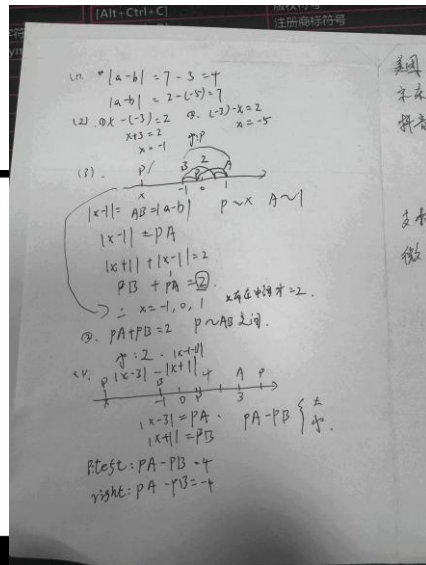 [Alt+Ctrl+C]
注册商标符号
(1). |a-b| = 7-3 = 4
|a-b| = 2-(-5) = 7
(2). ① x-(-3)=2 ②. (-3)-x=2
x+3=2 x=-5
x=-1
(3).
P B 2 A
x -1 0 1
|x-1| = AB=|a-b| P~x A~1
|x-1| = PA
|x+1| + |x-1| = 2
PB + PA = 2
∴ x=-1, 0, 1
②. PA+PB=2 P~AB之间.
|x-3| - |x+1|
P B 4 A P
x -1 0 3
|x-3| = PA. PA-PB { 大
|x+1| = PB 小.
P: left: PA-PB=4
right: PA-PB=-4
美团
京东
抖音